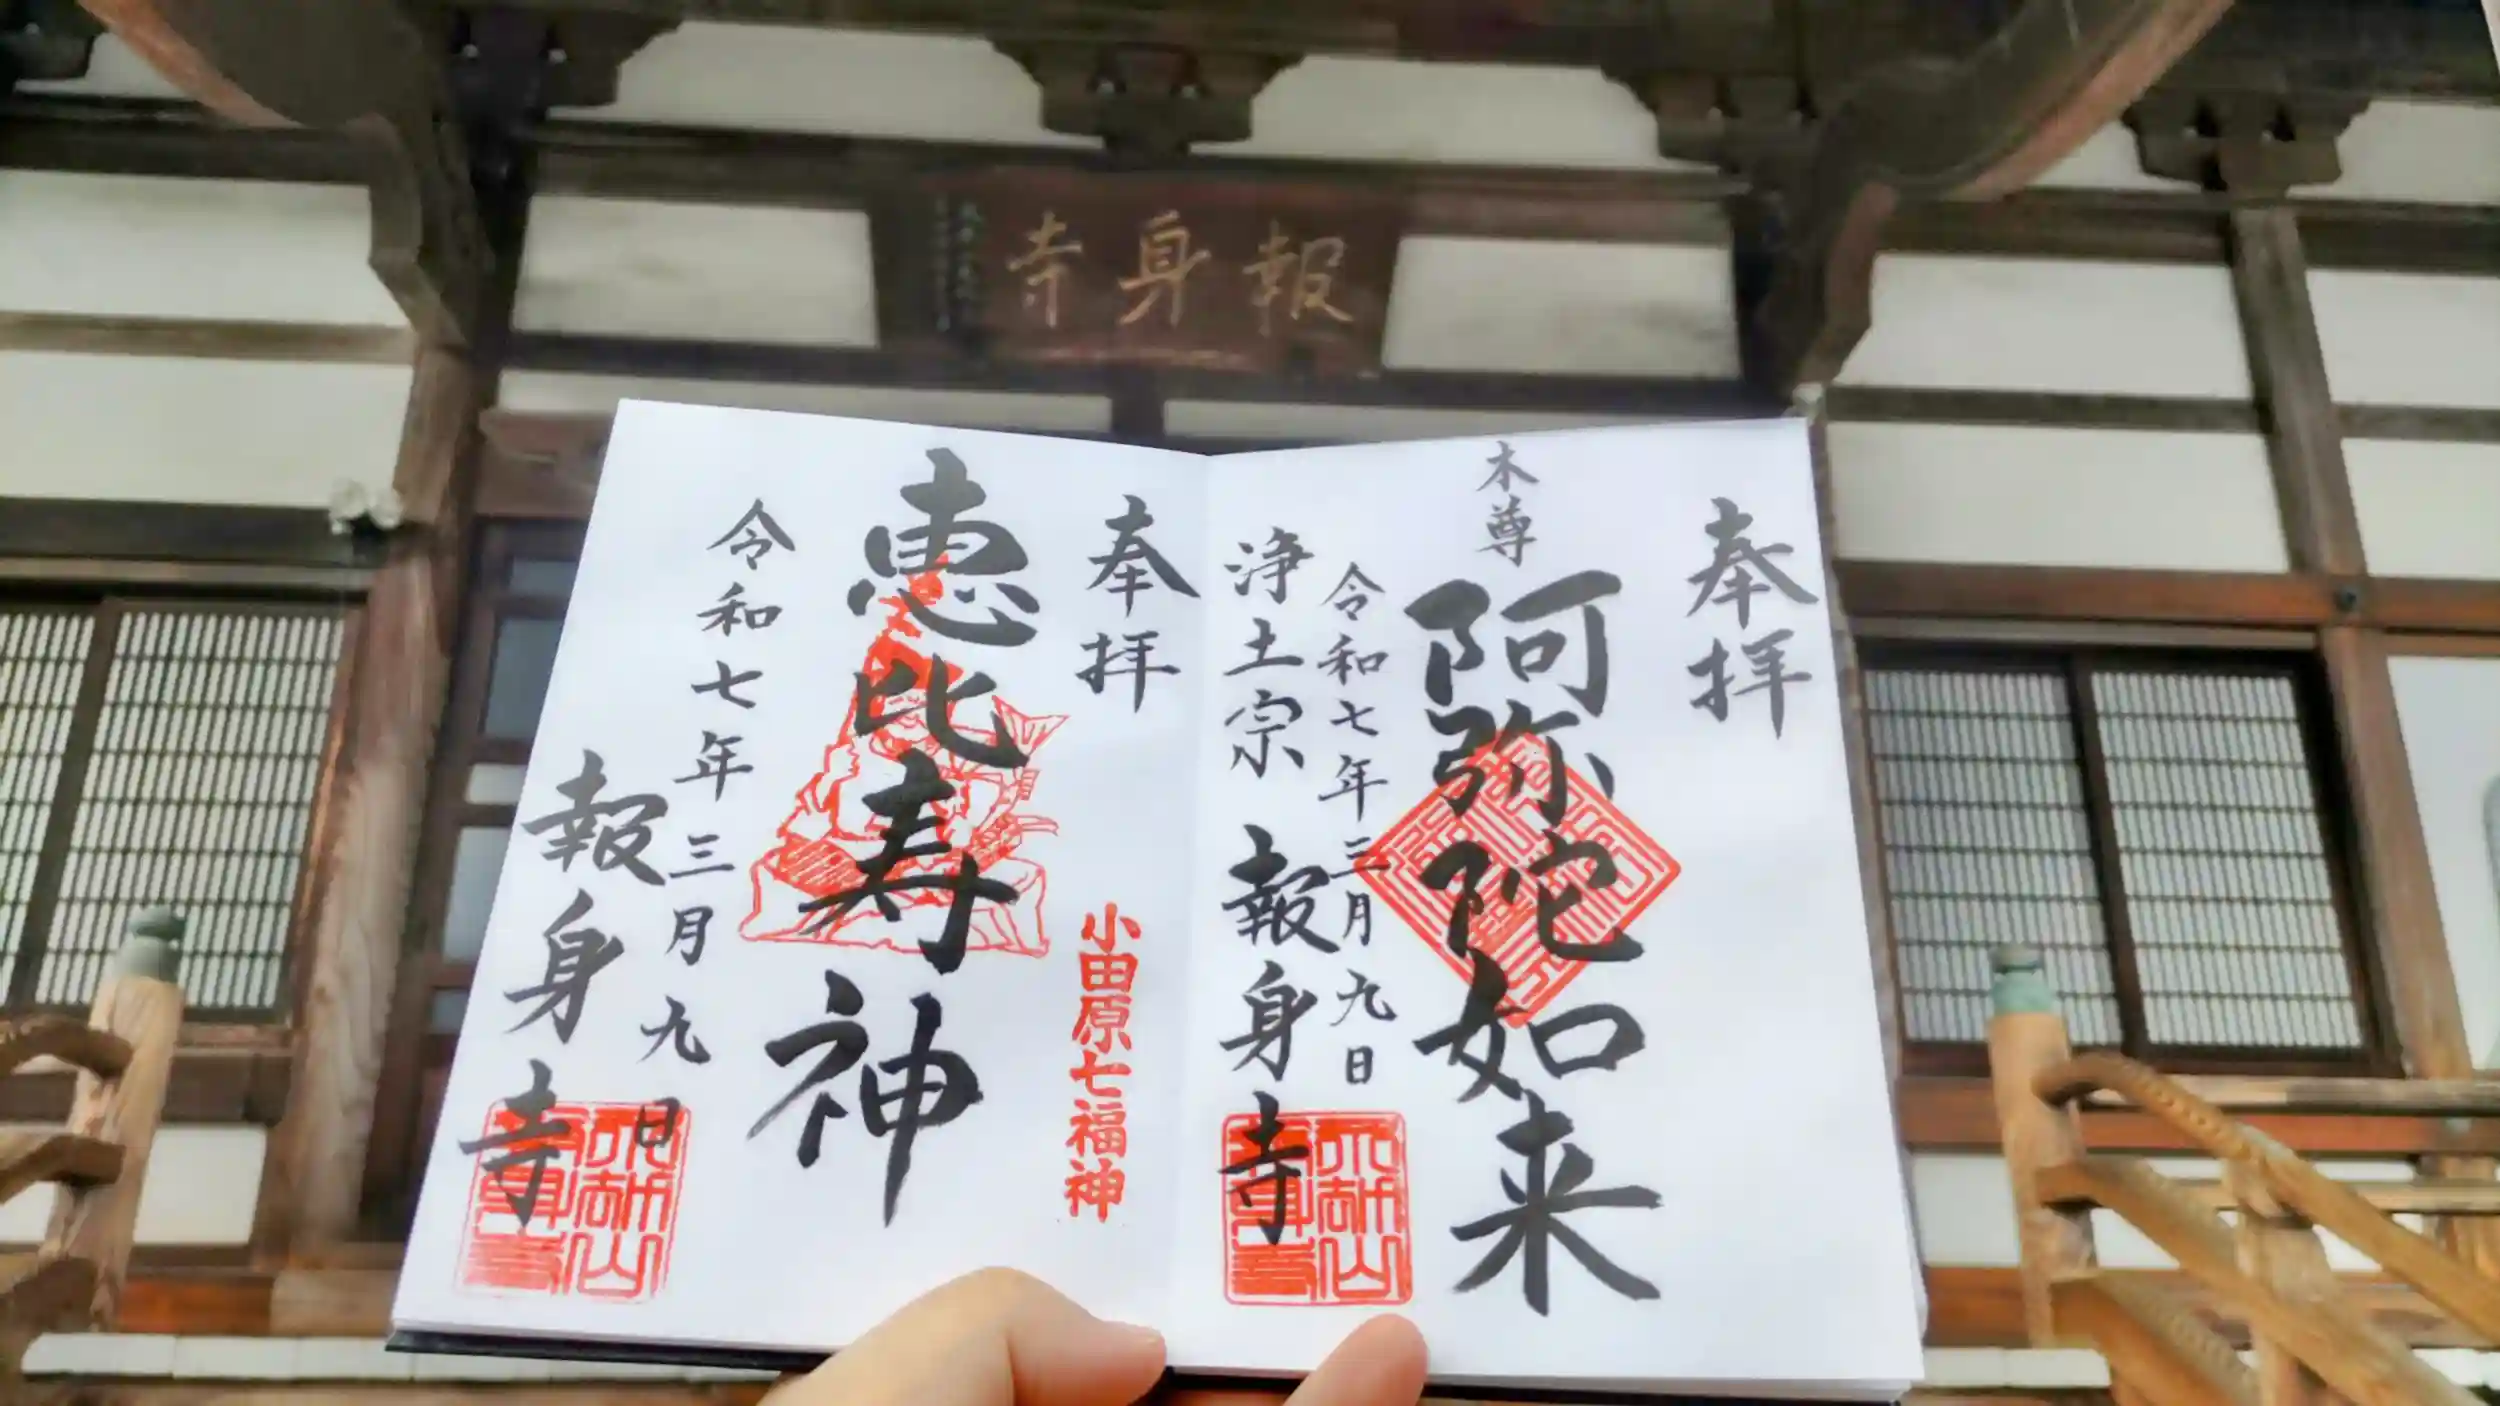 報身寺
奉拝
本尊
阿弥陀如来
令和七年三月九日
浄土宗
報身寺
奉拝
小田原七福神
恵比寿神
令和七年三月九日
報身寺